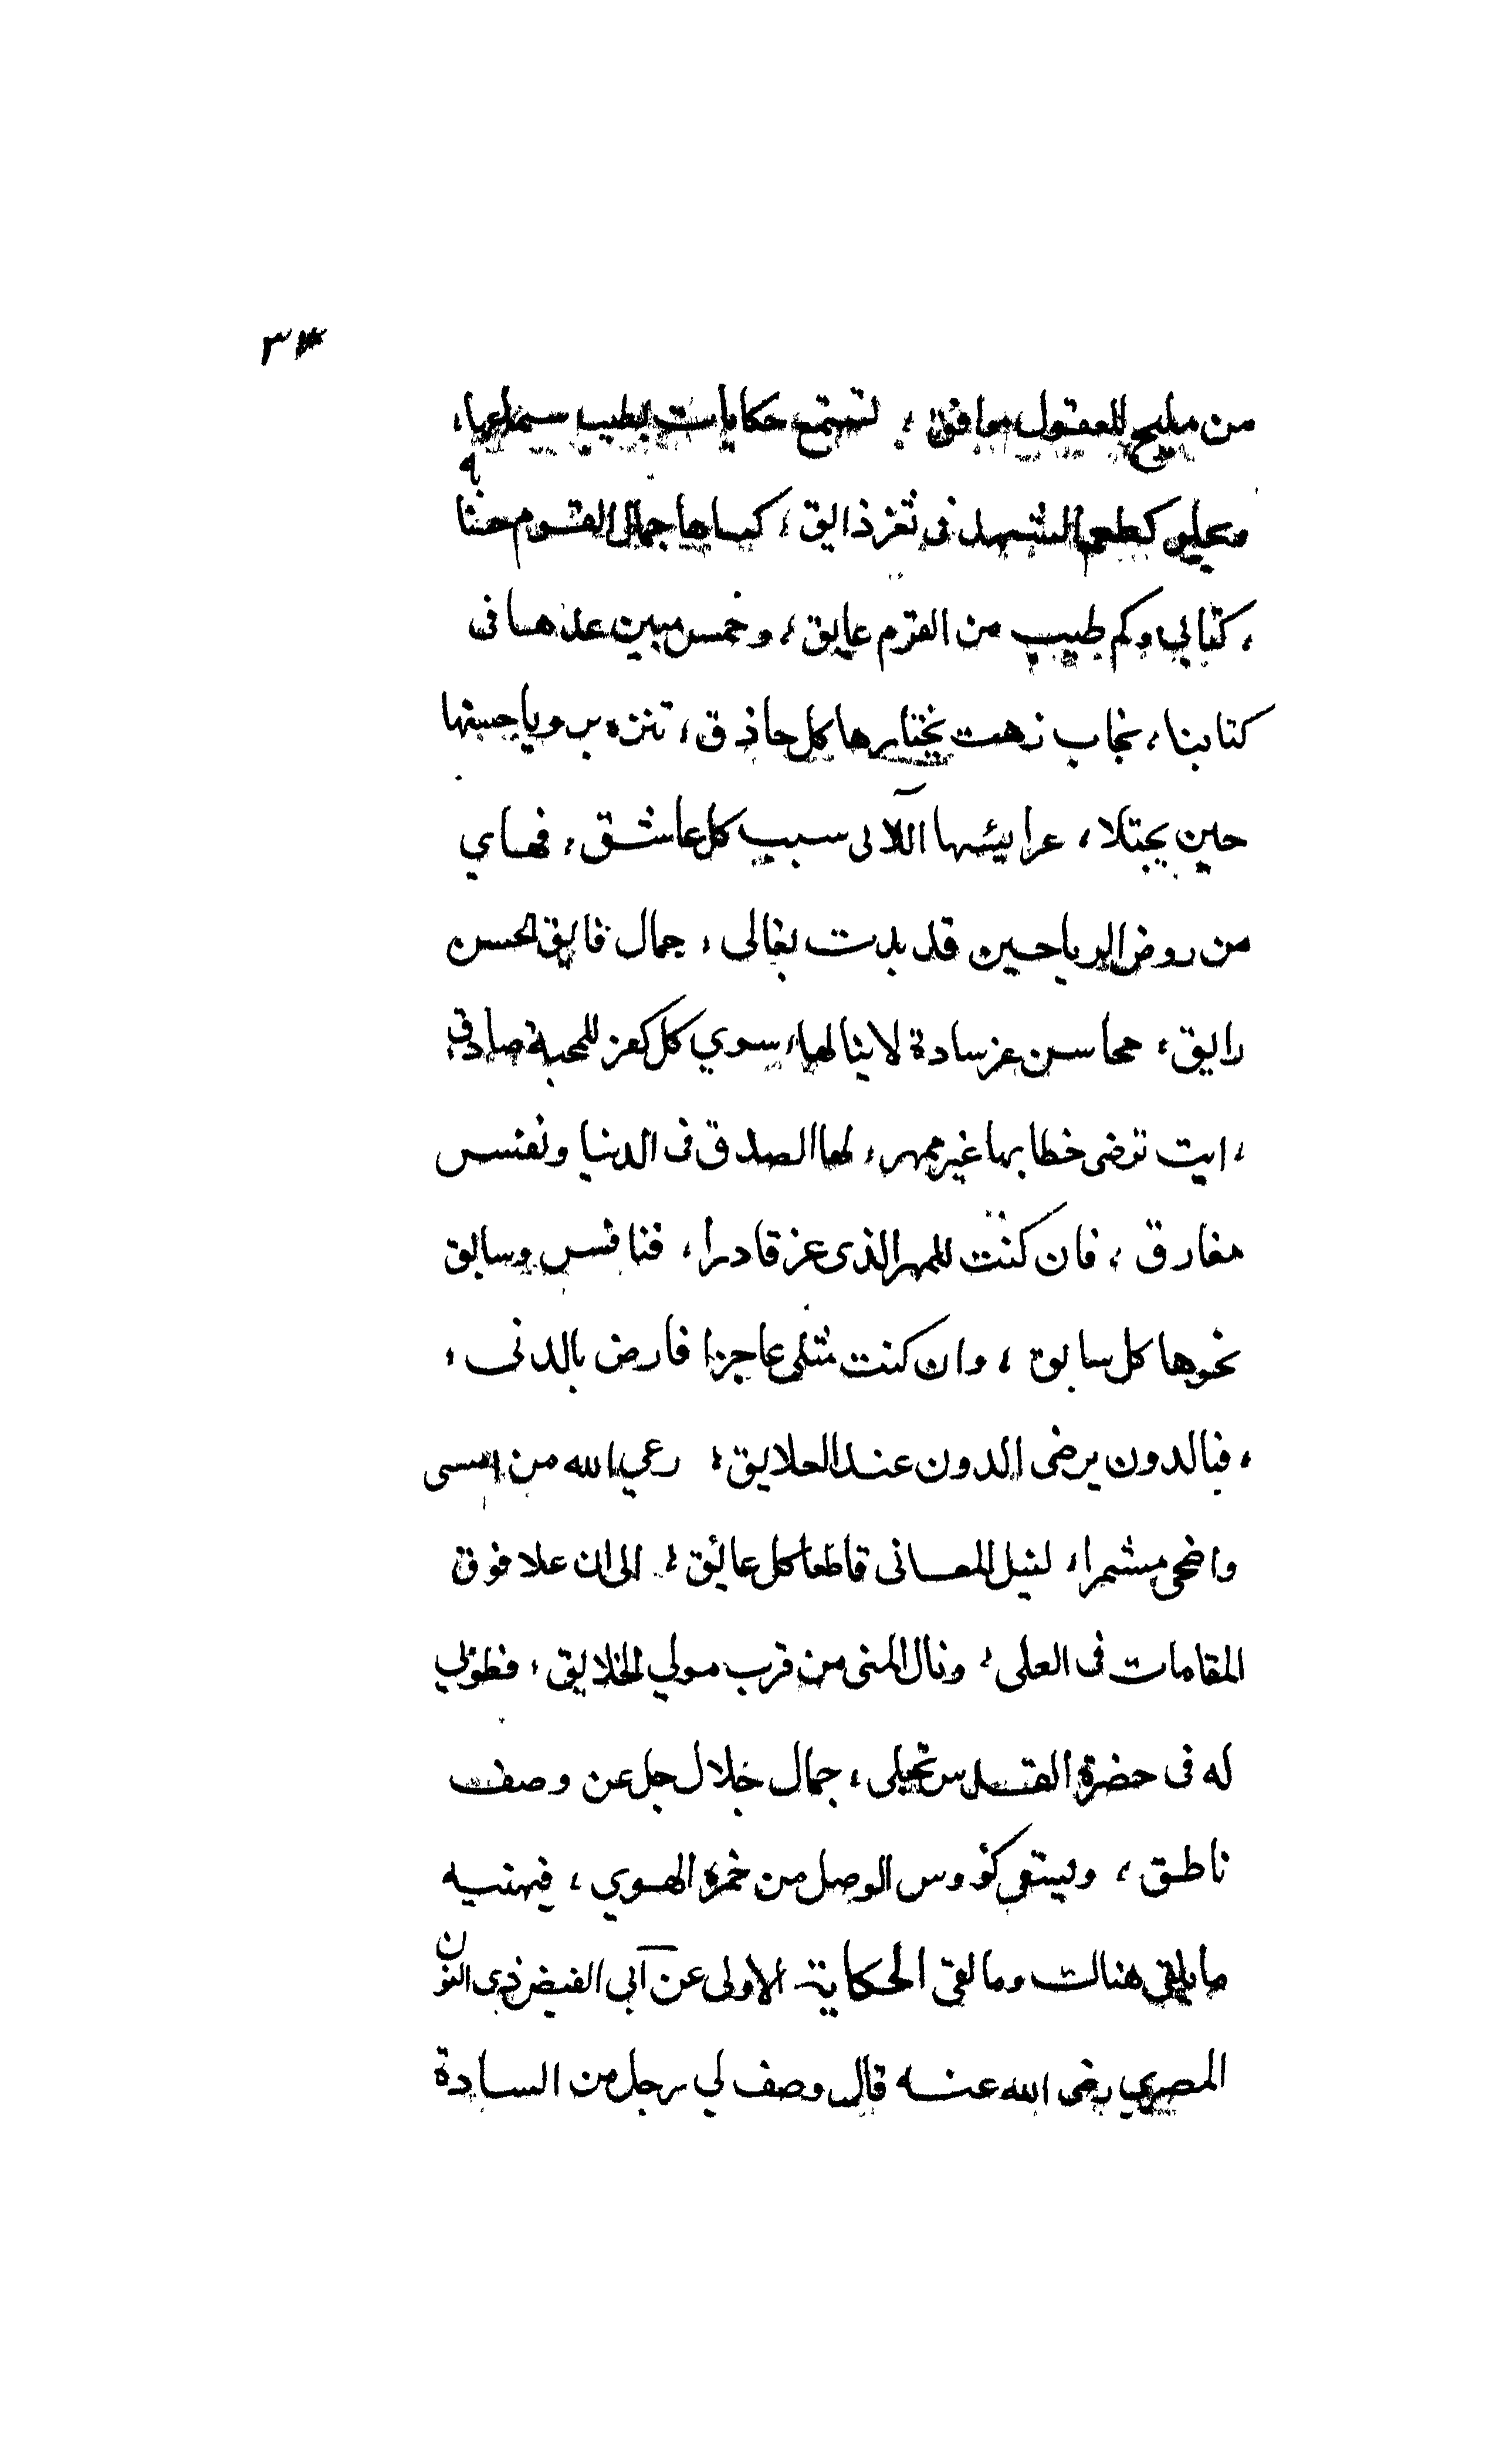 ٣٤
من مليح للعقول موافق، لتستمع حكايات يطيب سماعها،
وتحلو كطعم الشهد فى ثغر ذايق، كساها جمال القوم حسنا
، كتابي وكم طيب من القوم عابق، وخمس مبين عدها فى
كتابنا، نجاب زهت يختارها كل حاذق، تنزه بروياحسنها
حين يجتلا، عرايسها اللآلى سبب كل عاشق، فهاي
من روض الرياحين قد بدت بغالى، جمال فايق الحسن
رايق، محاسن عز سادة لا ينالها، سوي كل كفو للمحبة صادق
، ابت ترضى خطابها غير مهر، لها الصدق فى الدنيا ونفس
مفارق، فان كنت للمهر الذى عز قادرا، فنافس وسابق
نحوها كل سابق، وان كنت مثلى عاجزا فارض بالدنى،
، فبالدون يرضى الدون عند العلايق، رعي الله من امسى
واضحى مشمرا، لنيل المعانى قاطعا كل عائق، الى ان علا فوق
المقامات فى العلى، ونال المنى من قرب مولي الخلايق، فطوبي
له فى حضرة القدس تجلى، جمال جلال جل عن وصف
ناطق، ويسقى كؤوس الوصل من خمرة الهوي، فيهنيه
ما يلقى هنالك وما لقى الحكاية الاولى عن ابي الفيض ذي النون
المصري رضى الله عنه قال وصف لي رجل من السادة